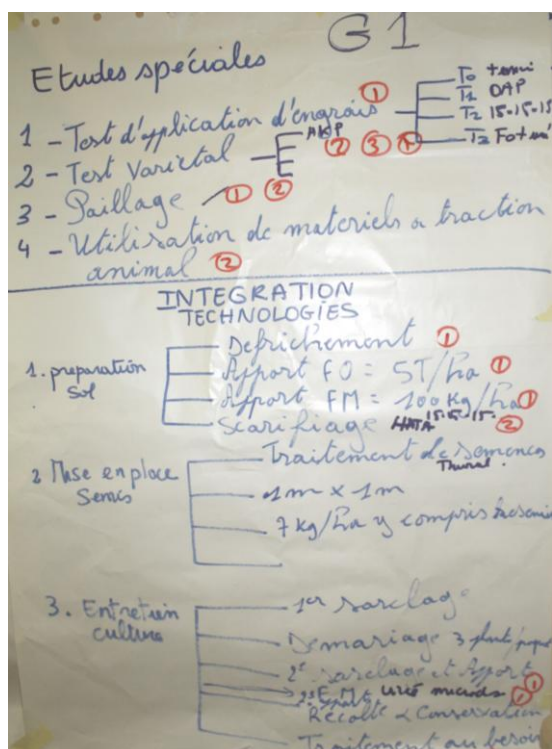 G1
Etudes spéciales
1 - Test d'application d'engrais ①
To
T1 DAP
T2 15-15-15
T3
2 - Test Varietal AKP ② ③
3 - Paillage ① ②
4 - Utilisation de materiels a traction
animal ②
INTEGRATION
TECHNOLOGIES
1. preparation
Sol
Defrichement ①
Apport FO = 5T/ha ①
Apport FM = 100 kg/ha ①
15-15-15
Scarifiage HATA ②
2 Mise en place
Semis
Traitement de semences
1m x 1m
7 kg/ha y compris
3. Entretien
culture
1er sarclage
Demariage 3 plants
2e sarclage et Apport
Récolte & Conservation
Traitement au besoin